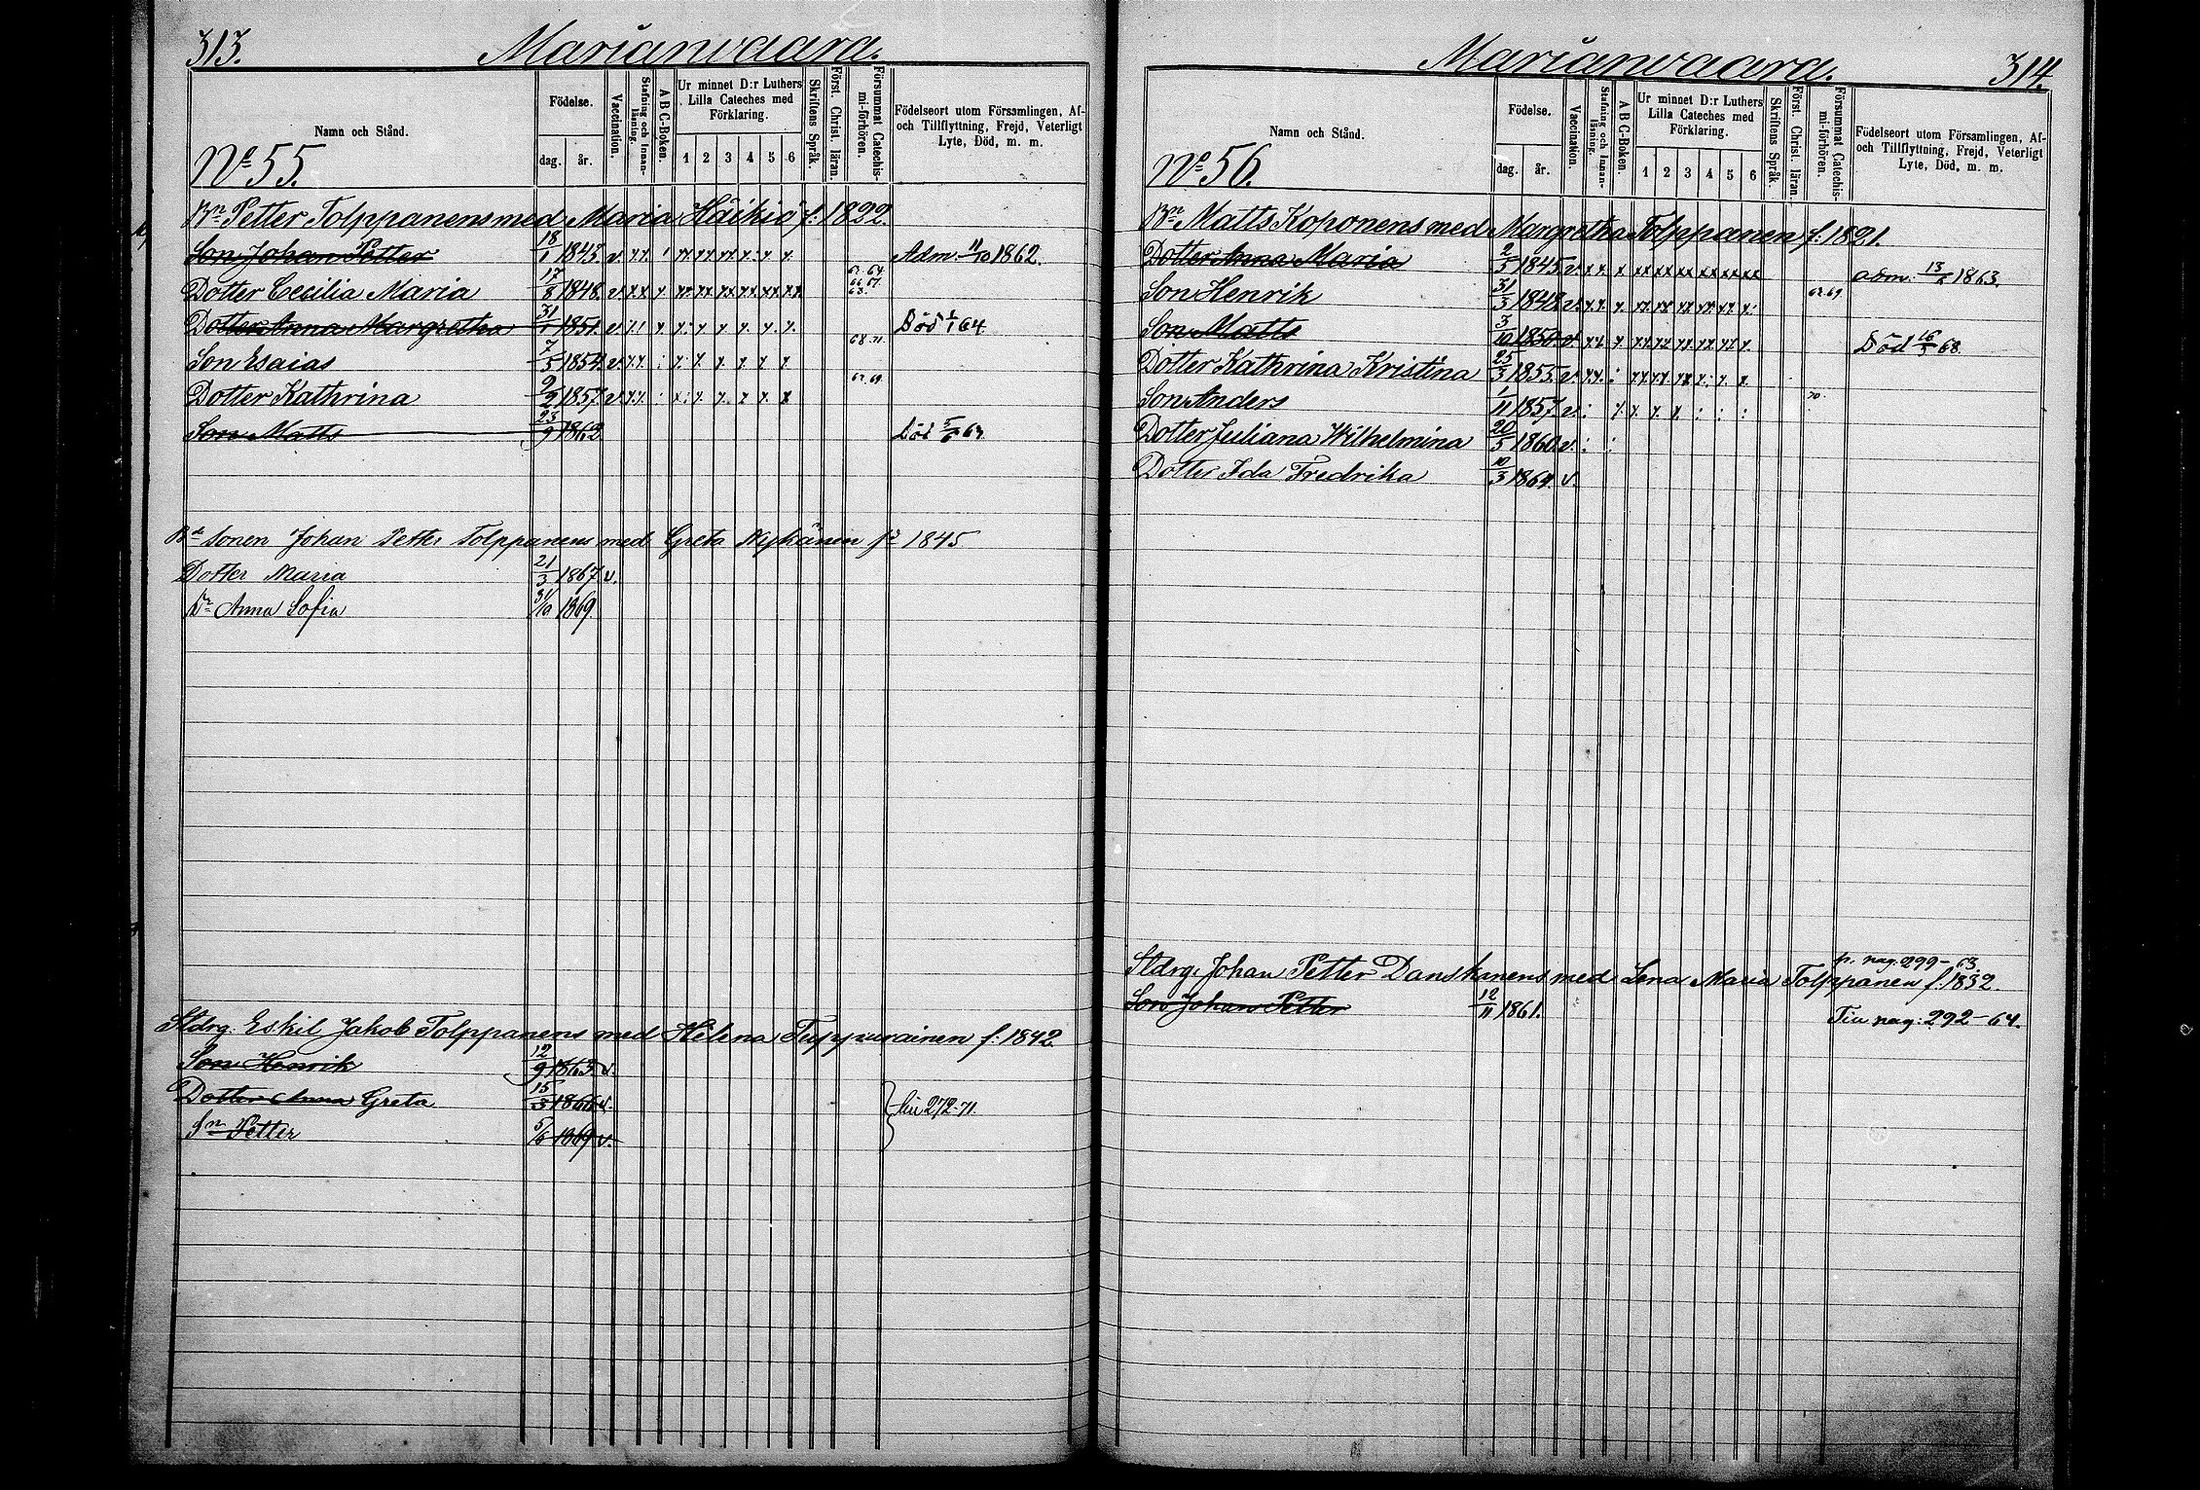 313. Marianvaara.
Namn och Stånd.
Födelse.
dag. år.
Vaccination.
Stafning och Innanläsning.
A B C-Boken.
Ur minnet D:r Luthers Lilla Cateches med Förklaring.
1 2 3 4 5 6
Skriftens Språk.
Först. Christ. läran.
Försummat Catechismi-förhören.
Födelseort utom Församlingen, Af-
och Tillflyttning, Frejd, Veterligt
Lyte, Död, m. m.
No 55.
Bn Petter Tolppanens med Maria Häikiö f: 1822.
Son Johan Petter 18/1 1843. v. Adm. 11/10 1862.
Dotter Cecilia Maria 17/8 1848. v.
Dotter Anna Margretha 31/1 1851. v. Död 1/1 64.
Son Esaias 7/5 1854. v. 68.71.
Dotter Kathrina 9/2 1857. v.
Son Matts 23/9 1862
Bd sonen Johan Petter Tolppanens med Greta f: 1845
Dotter Maria 21/3 1867 v.
Dr Anna Sofia 31/10 1869.
Stdrg. Eskil Jakob Tolppanens med Helena Tuppurainen f: 1842
Son Henrik 12/9 1863. v.
Dotter Anna Greta 15/3 1866 v. Till 272-71.
Sn Petter 5/6 1869 v.
Marianvaara. 314.
Namn och Stånd.
Födelse.
dag. år.
Vaccination.
Stafning och Innanläsning.
A B C-Boken.
Ur minnet D:r Luthers Lilla Cateches med Förklaring.
1 2 3 4 5 6
Skriftens Språk.
Först. Christ. läran.
Försummat Catechismi-förhören.
Födelseort utom Församlingen, Af-
och Tillflyttning, Frejd, Veterligt
Lyte, Död, m. m.
No 56.
Bn Matts Koponens med Margretha Tolppanen f: 1821.
Dotter Anna Maria 2/5 1845. v. adm. 1863.
Son Henrik 31/3 1848. v.
Son Matts 3/10 1850. v. Död 16/5 68.
Dotter Kathrina Kristina 25/3 1855. v.
Son Anders 1/11 1857. v. 70.
Dotter Juliana Wilhelmina 20/5 1860. v.
Dotter Ida Fredrika 10/3 1864. v.
fr. pag. 299-63.
Stdrg. Johan Petter Danskanens med Lena Maria Tolppanen f: 1832.
Son Johan Petter 12/11 1861.
Till pag: 292-64.